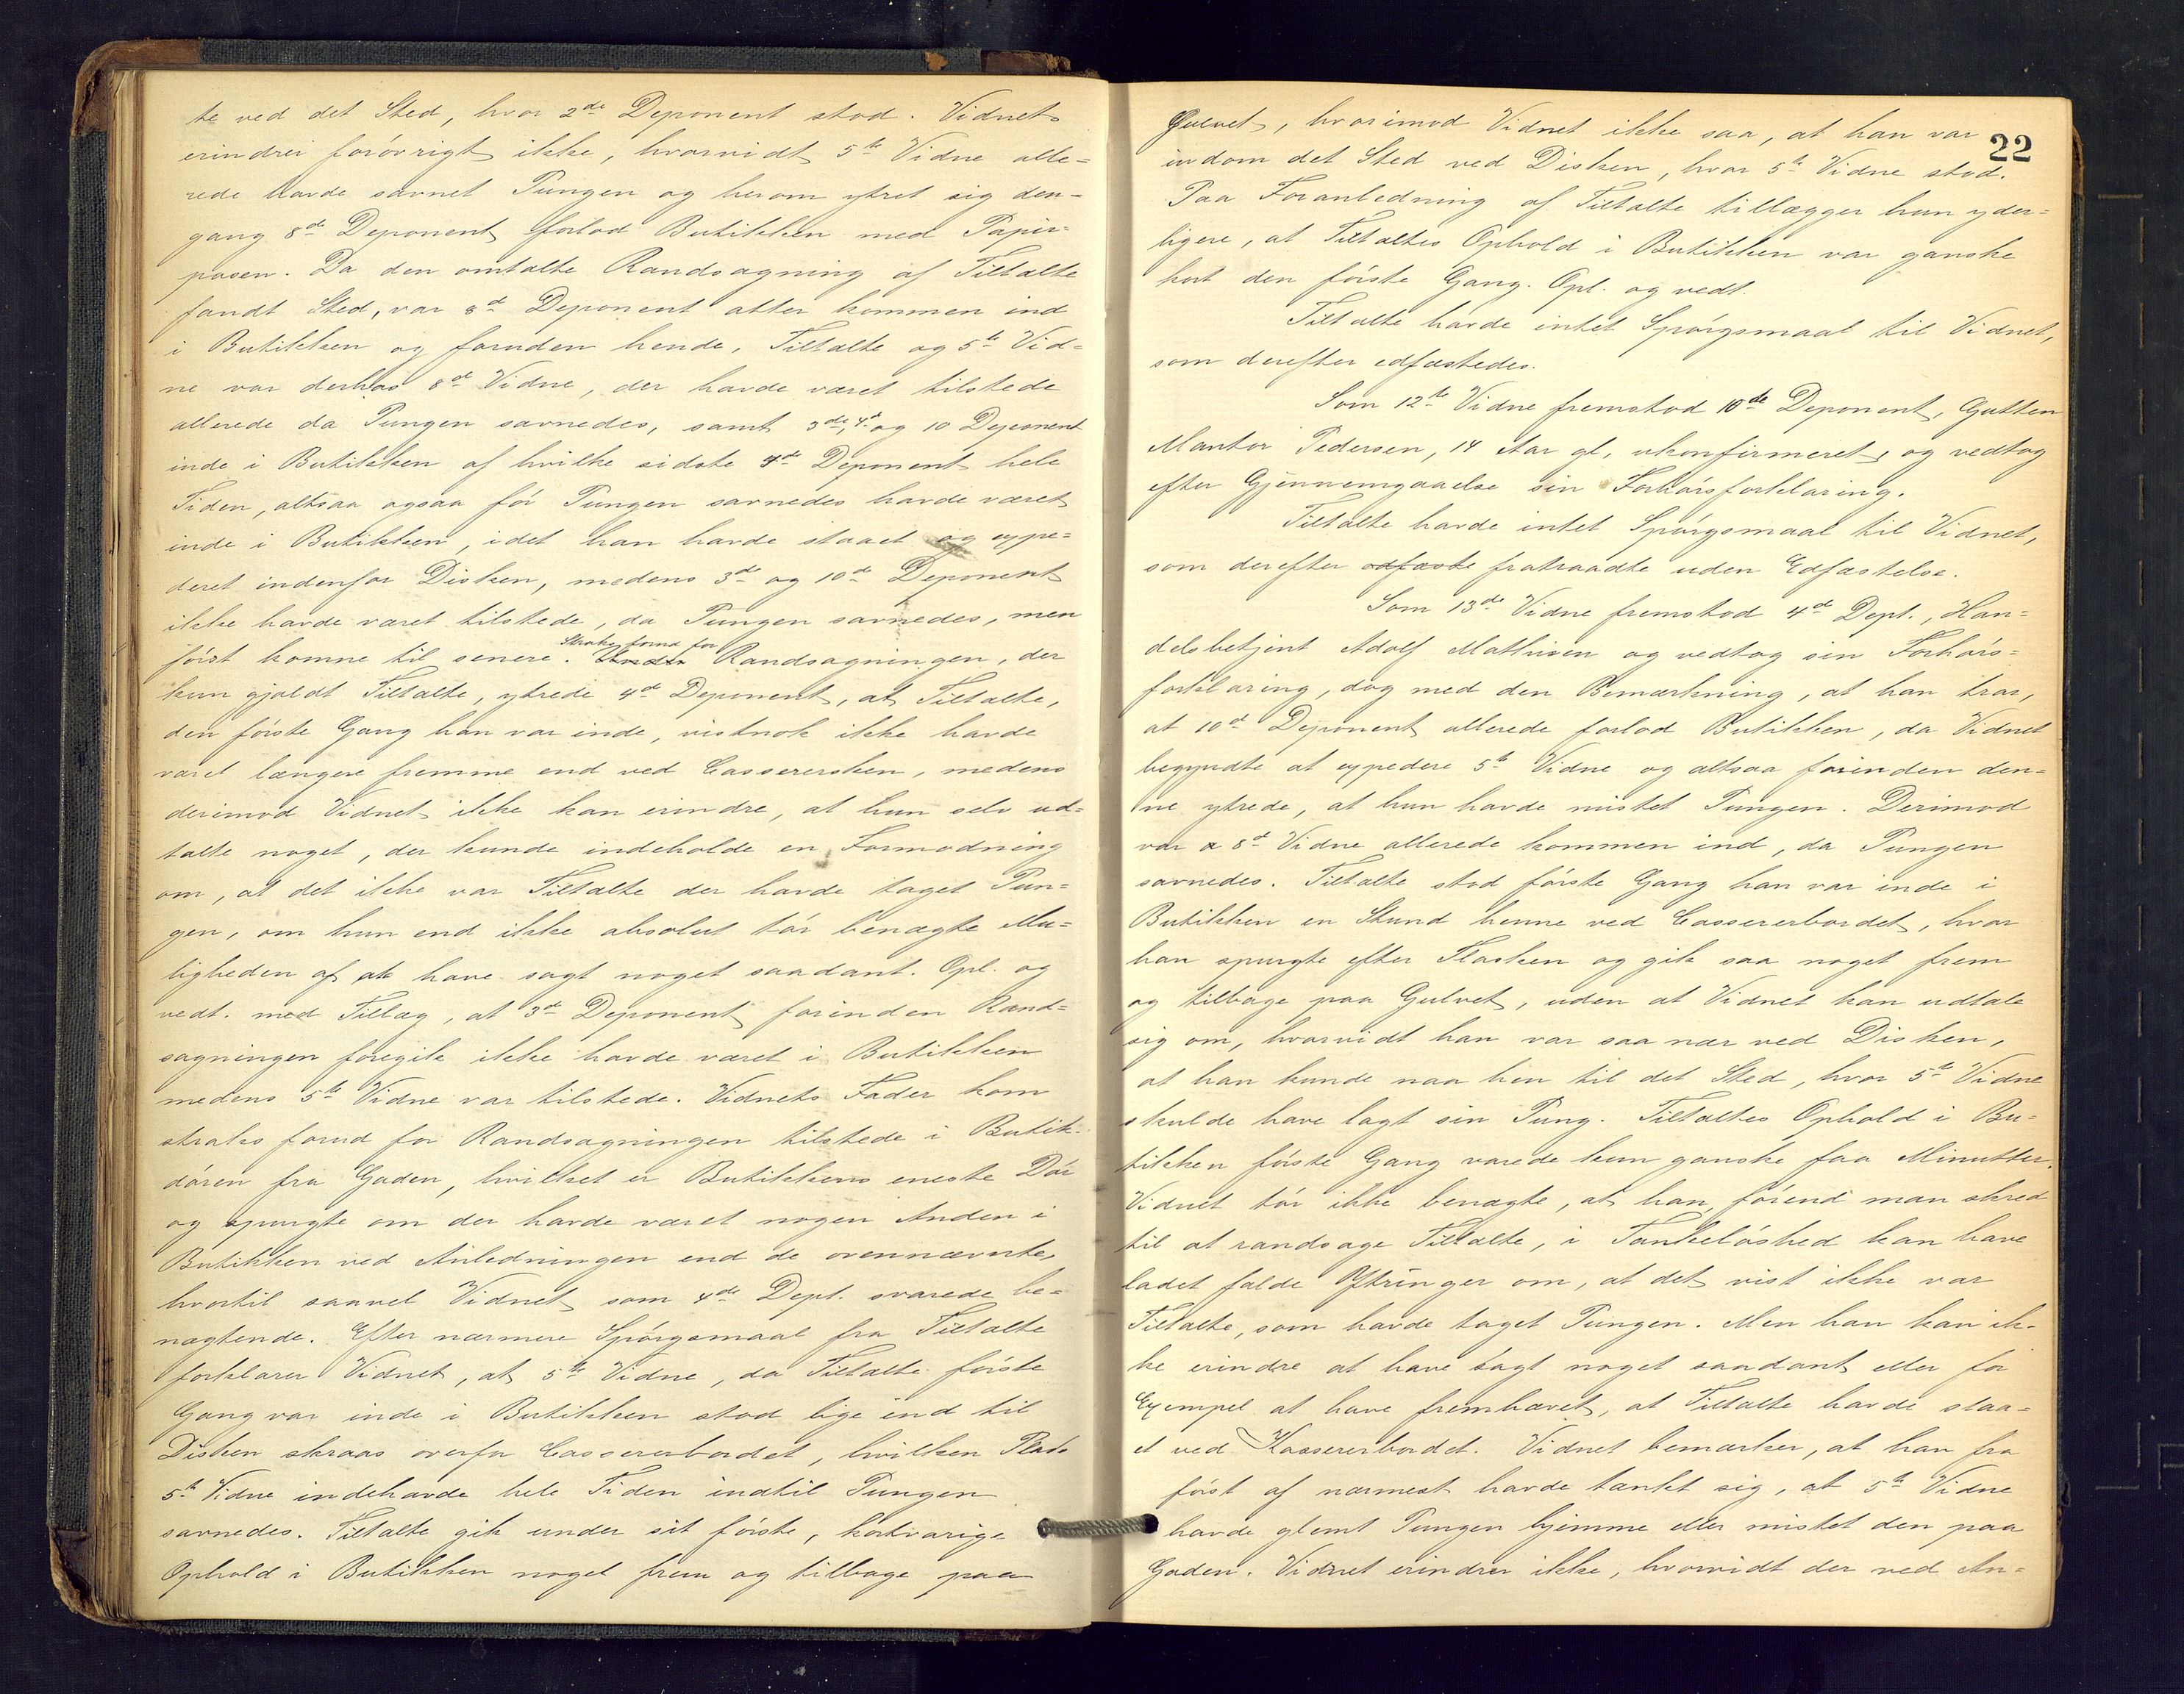 te ved det Sted, hvor 2de Deponent stod. Vidnet
erindrer forøvrigt ikke, hvorvidt 5te Vidne alle=
rede havde savnet Pungen og herom ytret sig den-
gang 8de Deponent forlod Butikken med Papir-
posen. Da den omtalte Randsagning af Tiltalte
fandt Sted, var 8de Deponent atter kommen ind
i Butikken og foruden hende, Tiltalte og 5te Vid=
ne var derhos 8de Vidne, der havde været tilstede
allerede da Pungen savnedes, samt 3de, 4de og 10 Deponent
inde i Butikken af hvilke sidste 4de Deponent hele
Tiden, altsaa ogsaa før Pungen savnedes havde været
inde i Butikken, idet han havde staaet og expe=
deret indenfor Disken, medens 3de og 10de Deponent
ikke havde været tilstede, da Pungen savnedes, men
først komne til senere. Straks forud for Randsagningen, der
kun gjaldt Tiltalte, ytrede 4de Deponent, at Tiltalte,
den første Gang han var inde, vistnok ikke havde
været længere fremme end ved Casserersken, medens
derimod Vidnet ikke kan erindre, at hun selv ud-
talte noget, der kunde indeholde en Formodning
om, at det ikke var Tiltalte der havde taget Pun=
gen, om hun end ikke absolut tør benægte Mu=
ligheden af at have sagt noget saadant. Opl. og
vedt. med Tillæg, at 3de Deponent forinden Rand=
sagningen foregik ikke havde været i Butikken
medens 5te Vidne var tilstede. Vidnets Fader kom
straks forud for Randsagningen tilstede i Butik-
døren fra Gaden, hvilket er Butikkens eneste Dør
og spurgte om der havde været nogen Anden i
Butikken ved Anledningen end de ovennævnte,
hvortil saavel Vidnet som 4de Dept. svarede be=
nægtende. Efter nærmere Spørgsmaal fra Tiltalte
forklarer Vidnet, at 5te Vidne, da Tiltalte første
Gang var inde i Butikken stod lige ind til
Disken skraas overfor Cassererbordet, hvilken Plads
5te Vidne indehavde hele Tiden indtil Pungen
savnedes. Tiltalte gik under sit første, kortvarige
Ophold i Butikken noget frem og tilbage paa
22
Gulvet, hvorimod Vidnet ikke saa, at han var
indom det Sted ved Disken, hvor 5te Vidne stod.
Paa Foranledning af Tiltalte tillægger hun yder=
ligere, at Tiltaltes Ophold i Butikken var ganske
kort den første Gang. Opl. og vedt.
Tiltalte havde intet Spørgsmaal til Vidnet,
som derefter edfæstedes.
Som 12te Vidne fremstod 10de Deponent, Gutten
Mantor Pedersen, 14 Aar gl, ukonfirmeret, og vedtog
efter Gjennemgaaelse sin Forhørsforklaring.
Tiltalte havde intet Spørgsmaal til Vidnet,
som derefter edfæste fratraadte uden Edfæstelse.
Som 13de Vidne fremstod 4de Dept., Han=
delsbetjent Adolf Mathisen og vedtog sin Forhørs=
forklaring, dog med den Bemærkning, at han tror,
at 10de Deponent allerede forlod Butikken, da Vidnet
begyndte at expedere 5te Vidne og altsaa forinden den=
ne ytrede, at hun havde mistet Pungen. Derimod
var a 8de Vidne allerede kommen ind, da Pungen
savnedes. Tiltalte stod første Gang han var inde i
Butikken en Stund henne ved Cassererbordet, hvor
han spurgte efter Flasken og gik saa noget frem
og tilbage paa Gulvet, uden at Vidnet kan udtale
sig om, hvorvidt han var saa nær ved Disken,
at han kunde naa hen til det Sted, hvor 5te Vidne
skulde have lagt sin Pung. Tiltaltes Ophold i Bu=
tikken første Gang varede kun ganske faa Minutter.
Vidnet tør ikke benægte, at han, førend man skred
til at randsage Tiltalte, i Tankeløshed kan have
ladet falde Yttringer om, at det vist ikke var
Tiltalte, som havde taget Pungen. Men han kan ik-
ke erindre at have sagt noget saadant eller for
Exempel at have fremhævet, at Tiltalte havde staa=
et ved Kassererbordet. Vidnet bemærker, at han fra
først af nærmest havde tænkt sig, at 5te Vidne
havde glemt Pungen hjemme eller mistet den paa
Gaden. Vidnet erindrer ikke, hvorvidt der ved An=